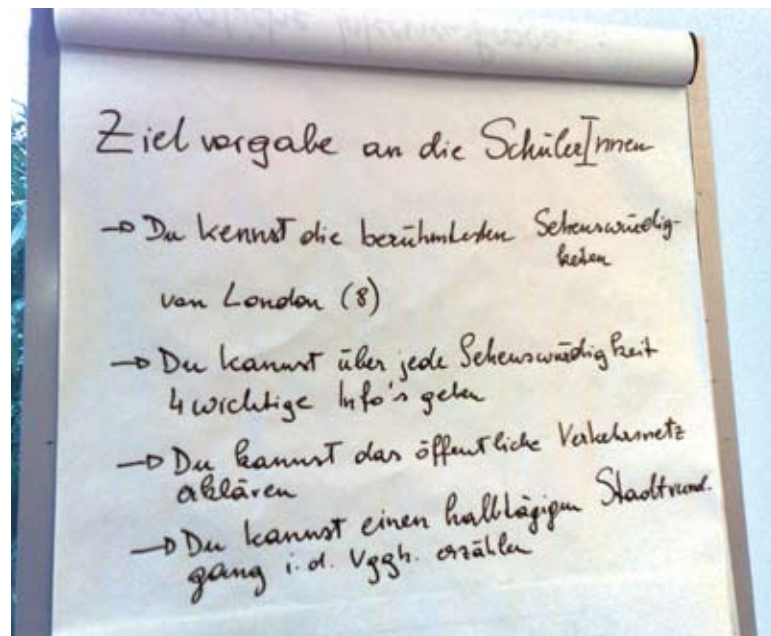 Zielvorgabe an die SchülerInnen
→ Du kennst die berühmtesten Sehenswürdig-
keiten
von London (8)
→ Du kannst über jede Sehenswürdigkeit
4 wichtige Info's geben
→ Du kannst das öffentliche Verkehrsnetz
erklären
→ Du kannst einen halbtägigen Stadtrund-
gang i. d. Vggh. erzählen